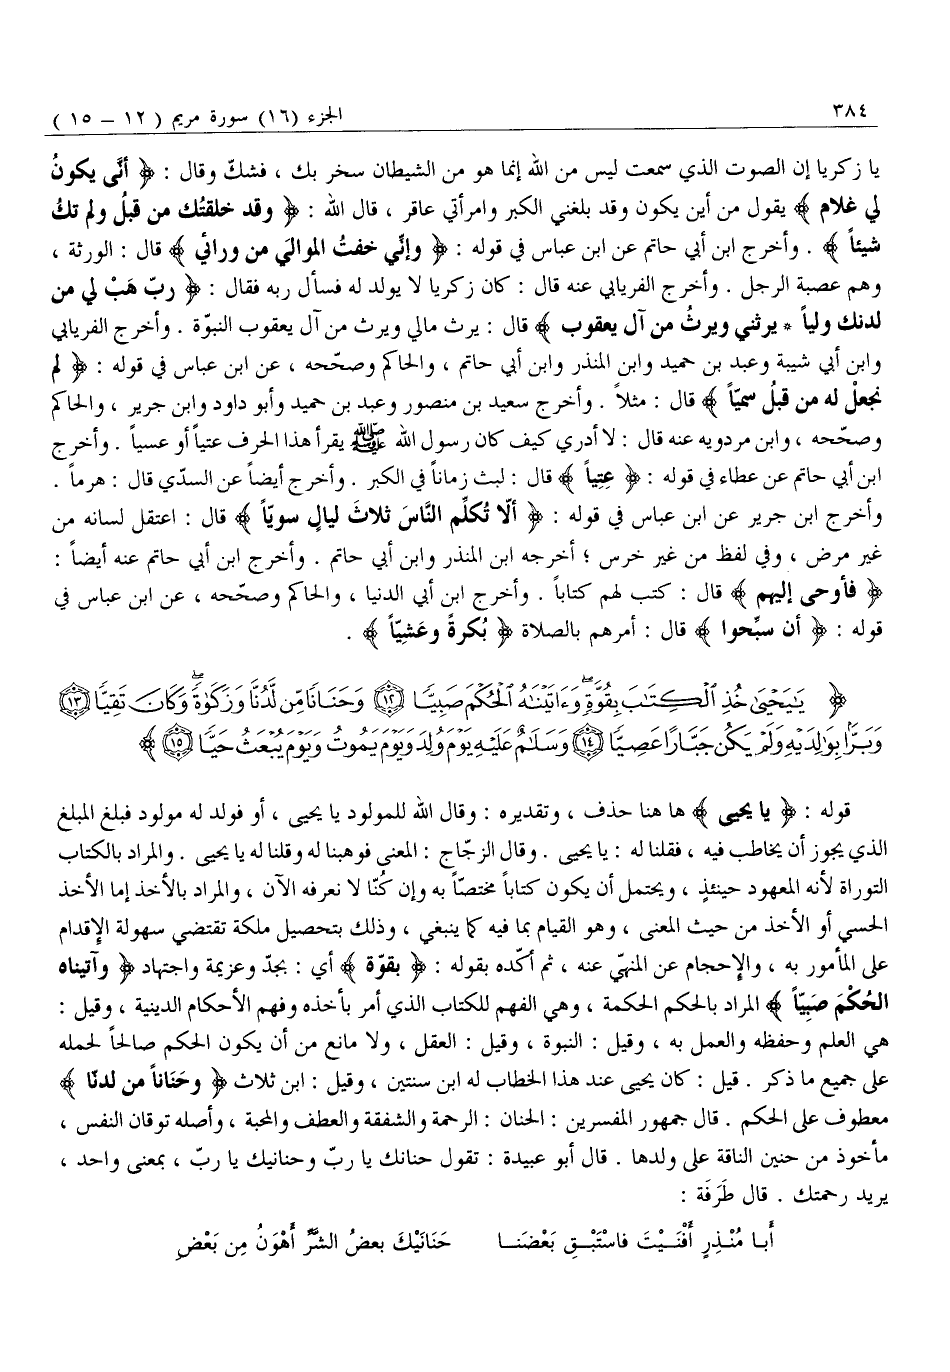 ٣٨٤
الجزء (١٦) سورة مريم ( ١٢ – ١٥ )
يا زكريا إن الصوت الذي سمعت ليس من الله إنما هو من الشيطان سخر بك ، فشكّ وقال : ﴿ أنّى يكونُ
لي غلام ﴾ يقول من أين يكون وقد بلغني الكبر وامرأتي عاقر ، قال الله : ﴿ وقد خلقتُك من قبلُ ولم تكُ
شيئاً ﴾ . وأخرج ابن أبي حاتم عن ابن عباس في قوله : ﴿ وإنّي خفتُ الموالي من ورائي ﴾ قال : الورثة ،
وهم عصبة الرجل . وأخرج الفريابي عنه قال : كان زكريا لا يولد له فسأل ربه فقال : ﴿ ربّ هَبْ لي من
لدنك ولياً * يرثني ويرثُ من آل يعقوب ﴾ قال : يرث مالي ويرث من آل يعقوب النبوّة . وأخرج الفريابي
وابن أبي شيبة وعبد بن حميد وابن المنذر وابن أبي حاتم ، والحاكم وصحّحه ، عن ابن عباس في قوله : ﴿ لم
نجعلْ له من قبلُ سميّاً ﴾ قال : مثلاً . وأخرج سعيد بن منصور وعبد بن حميد وأبو داود وابن جرير ، والحاكم
وصحّحه ، وابن مردويه عنه قال : لا أدري كيف كان رسول الله ﷺ يقرأ هذا الحرف عتياً أو عسياً . وأخرج
ابن أبي حاتم عن عطاء في قوله : ﴿ عِتِياً ﴾ قال : لبث زماناً في الكبر . وأخرج أيضاً عن السدّي قال : هرماً .
وأخرج ابن جرير عن ابن عباس في قوله : ﴿ ألّا تُكلِّم النَّاسَ ثلاثَ ليالٍ سويّاً ﴾ قال : اعتقل لسانه من
غير مرض ، وفي لفظ من غير خرس ؛ أخرجه ابن المنذر وابن أبي حاتم . وأخرج ابن أبي حاتم عنه أيضاً :
﴿ فأوحى إليهم ﴾ قال : كتب لهم كتاباً . وأخرج ابن أبي الدنيا ، والحاكم وصحّحه ، عن ابن عباس في
قوله : ﴿ أن سبِّحوا ﴾ قال : أمرهم بالصلاة ﴿ بُكرةً وعَشِيّاً ﴾ .
﴿ يَٰيَحْيَىٰ خُذِ ٱلْكِتَٰبَ بِقُوَّةٍۖ وَءَاتَيْنَٰهُ ٱلْحُكْمَ صَبِيًّا ١٢ وَحَنَانًا مِّن لَّدُنَّا وَزَكَوٰةًۖ وَكَانَ تَقِيًّا ١٣
وَبَرًّۢا بِوَٰلِدَيْهِ وَلَمْ يَكُن جَبَّارًا عَصِيًّا ١٤ وَسَلَٰمٌ عَلَيْهِ يَوْمَ وُلِدَ وَيَوْمَ يَمُوتُ وَيَوْمَ يُبْعَثُ حَيًّا ١٥ ﴾
قوله : ﴿ يا يحيى ﴾ ها هنا حذف ، وتقديره : وقال الله للمولود يا يحيى ، أو فولد له مولود فبلغ المبلغ
الذي يجوز أن يخاطب فيه ، فقلنا له : يا يحيى . وقال الزجّاج : المعنى فوهبنا له وقلنا له يا يحيى . والمراد بالكتاب
التوراة لأنه المعهود حينئذٍ ، ويحتمل أن يكون كتاباً مختصّاً به وإن كُنّا لا نعرفه الآن ، والمراد بالأخذ إما الأخذ
الحسي أو الأخذ من حيث المعنى ، وهو القيام بما فيه كما ينبغي ، وذلك بتحصيل ملكة تقتضي سهولة الإقدام
على المأمور به ، والإحجام عن المنهيّ عنه ، ثم أكّده بقوله : ﴿ بقوّة ﴾ أي : بجدّ وعزيمة واجتهاد ﴿ وآتيناه
الحُكْمَ صَبِيّاً ﴾ المراد بالحكم الحكمة ، وهي الفهم للكتاب الذي أمر بأخذه وفهم الأحكام الدينية ، وقيل :
هي العلم وحفظه والعمل به ، وقيل : النبوة ، وقيل : العقل ، ولا مانع من أن يكون الحكم صالحاً لحمله
على جميع ما ذكر . قيل : كان يحيى عند هذا الخطاب له ابن سنتين ، وقيل : ابن ثلاث ﴿ وحَناناً من لدنّا ﴾
معطوف على الحكم . قال جمهور المفسرين : الحنان : الرحمة والشفقة والعطف والمحبة ، وأصله توقان النفس ،
مأخوذ من حنين الناقة على ولدها . قال أبو عبيدة : تقول حنانك يا ربّ وحنانيك يا ربّ ، بمعنى واحد ،
يريد رحمتك . قال طَرَفَة :
أَبـا مُنْـذِرٍ أَفْنَـيْتَ فاسْتَبْـقِ بَعْضَنَـا حَنَانَيْكَ بعضُ الشرِّ أَهْوَنُ مِن بَعْضِ